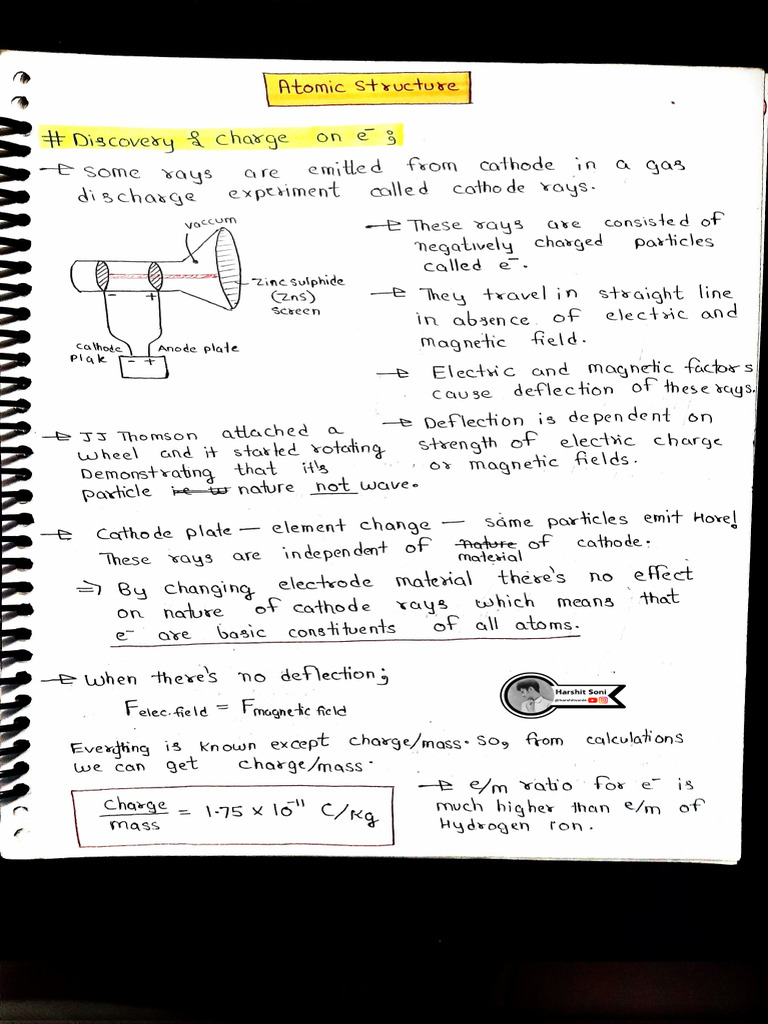 Atomic Structure
# Discovery & charge on e⁻ ;
→ Some rays are emitted from cathode in a gas
discharge experiment called cathode rays.
vaccum
Zinc sulphide
(ZnS)
screen
- +
cathode
plate
Anode plate
- +
→ These rays are consisted of
negatively charged particles
called e⁻.
→ They travel in straight line
in absence of electric and
magnetic field.
→ Electric and magnetic factors
cause deflection of these rays.
→ Deflection is dependent on
strength of electric charge
or magnetic fields.
→ JJ Thomson attached a
wheel and it started rotating
Demonstrating that it's
particle nature not wave.
→ Cathode plate — element change — same particles emit Hore!
These rays are independent of nature of cathode.
material
⇒ By changing electrode material there's no effect
on nature of cathode rays which means that
e⁻ are basic constituents of all atoms.
→ When there's no deflection;
Felec.field = Fmagnetic field
Harshit Soni
Everything is known except charge/mass. So, from calculations
we can get charge/mass.
Charge/mass = 1.75 × 10⁻¹¹ C/Kg
→ e/m ratio for e⁻ is
much higher than e/m of
Hydrogen Ion.